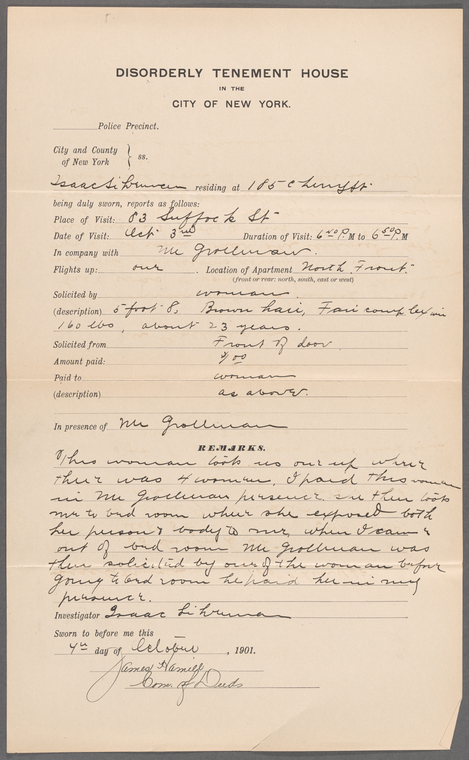 DISORDERLY TENEMENT HOUSE
IN THE
CITY OF NEW YORK.
Police Precinct.
City and County
of New York } ss.
Isaac Silverman residing at 185 Cherry st
being duly sworn, reports as follows:
Place of Visit: 83 Suffock St
Date of Visit: Oct 3rd Duration of Visit: 6 40 P.M to 6 50 P.M
In company with Mr Grollman.
Flights up: one. Location of Apartment North Front.
(front or rear: north, south, east or west)
Solicited by woman
(description) 5 foot 8, Brown hair, Fair complexin
160 lbs, about 23 years.
Solicited from Front of door
Amount paid: 1/00
Paid to woman
(description) as above.
In presence of Mr Grollman
REMARKS.
This woman took us one up where
there was 4 women. I paid this woman
in Mr Grollman persence. she then took
me to bed room where she exposed both
her person & body to me, when I came
out of bed room Mr Grollman was
then solicited by one of the woman before
going to bed room he paid her in my
persence.
Investigator Isaac Silverman
Sworn to before me this
4th day of October, 1901.
James Hamill
Com. of Deeds